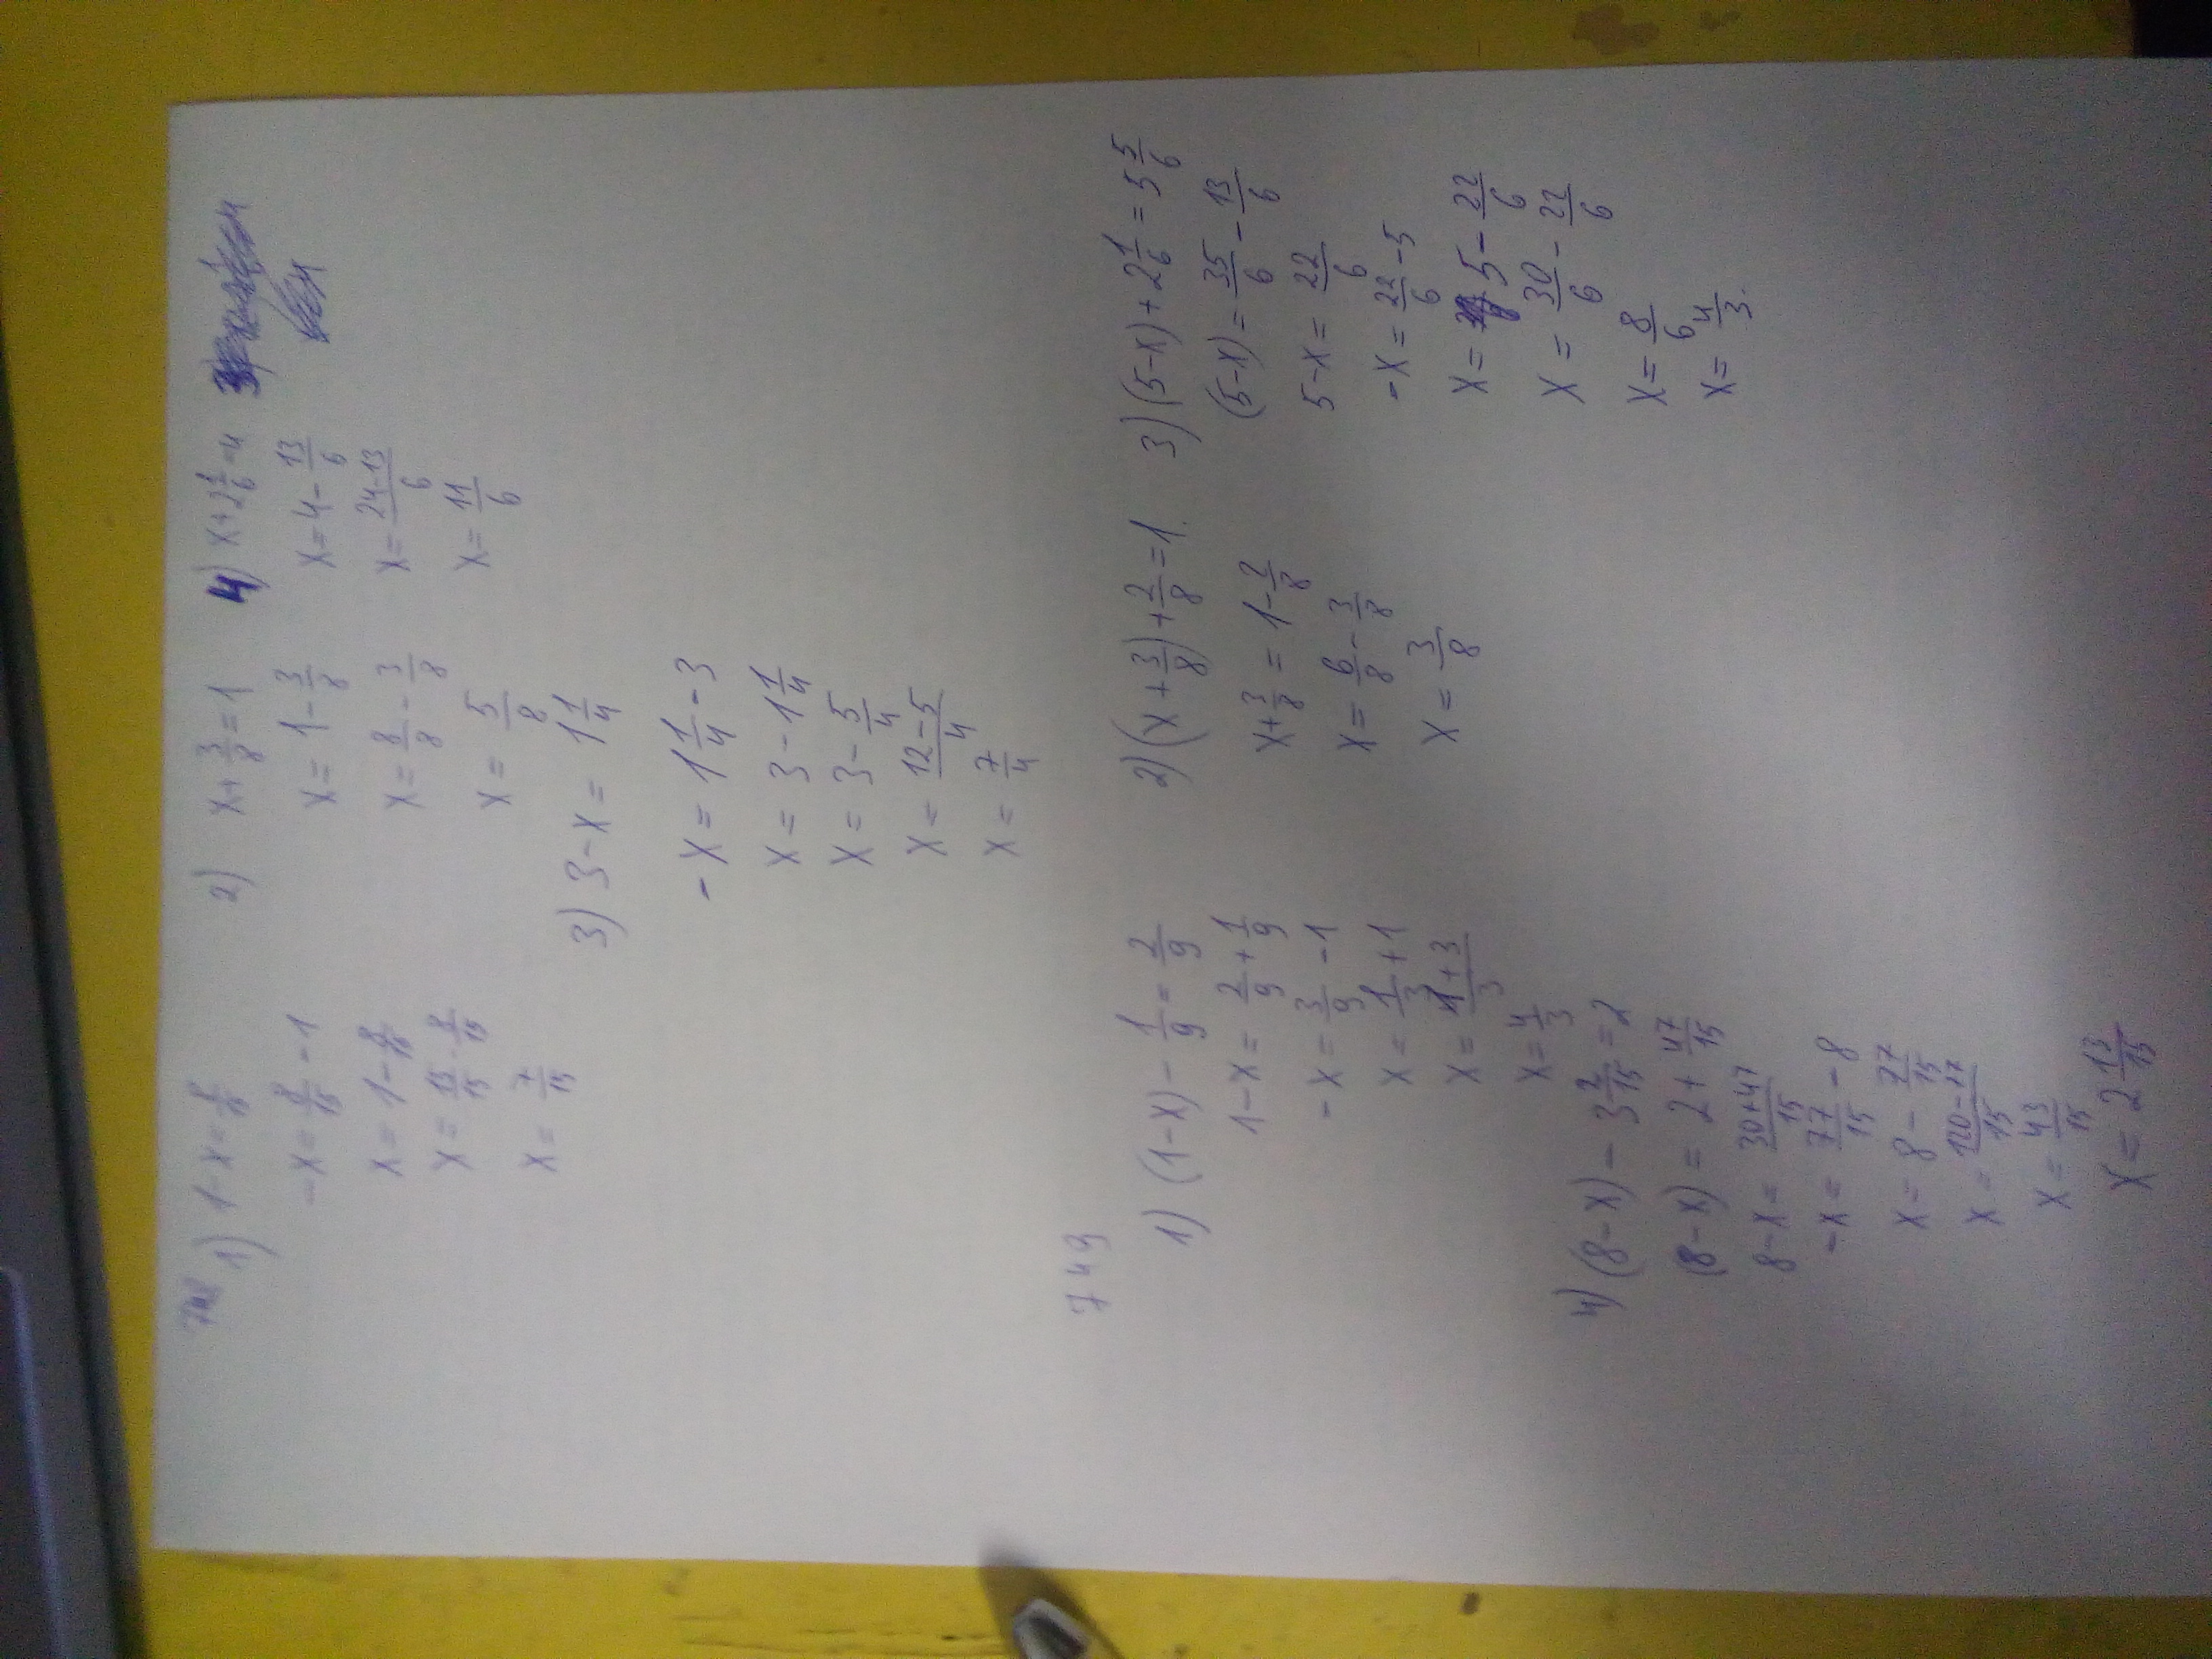 748
1) 1-x=8/15
-x=8/15-1
x=1-8/15
x=15/15-8/15
x=7/15
2) x+3/8=1
x=1-3/8
x=8/8-3/8
x=5/8
4) x+2 1/6=4
x=4-13/6
x=24-13/6
x=11/6
3) 3-x=1 1/4
-x=1 1/4-3
x=3-1 1/4
x=3-5/4
x=12-5/4
x=7/4
749
1) (1-x)-1/9=2/9
1-x=2/9+1/9
-x=3/9-1
x=1/3+1
x=1+3/3
x=4/3
2) (x+3/8)+2/8=1.
x+3/8=1-2/8
x=6/8-3/8
x=3/8
3) (5-x)+2 1/6=5 5/6
(5-x)=35/6-13/6
5-x=22/6
-x=22/6-5
x=5-22/6
x=30/6-22/6
x=8/6
x=4/3.
4) (8-x)-3 2/15=2
(8-x)=2+47/15
8-x=30+47/15
-x=77/15-8
x=8-77/15
x=120-77/15
x=43/15
x=2 13/15